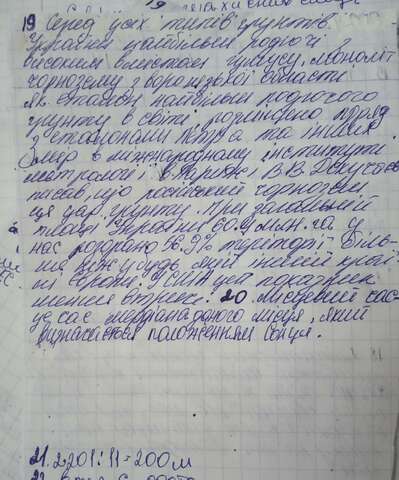 19 Серед усіх типів грунтів
України найбільш родючі
високим вмістом гумусу, моноліт
чорнозему з воронізької області
як еталон найбільш родючого
грунту в світі поряд
з еталонами метра та інших
мір в міжнародному інституті
метрології в Парижі. В.В. Докучаєв
писав, що російський чорнозем
це цар грунту. При загальній
площі України 60.4 млн. га у
нас розорано 56.9% території біль-
ше ніж у будь якій іншій краї-
ні Європи. У США цей показник
менше втричі. 20. Місцевий час-
це час меридіана даного місця, який
визначається положенням сонця.
21. 2201:11=200м
22.